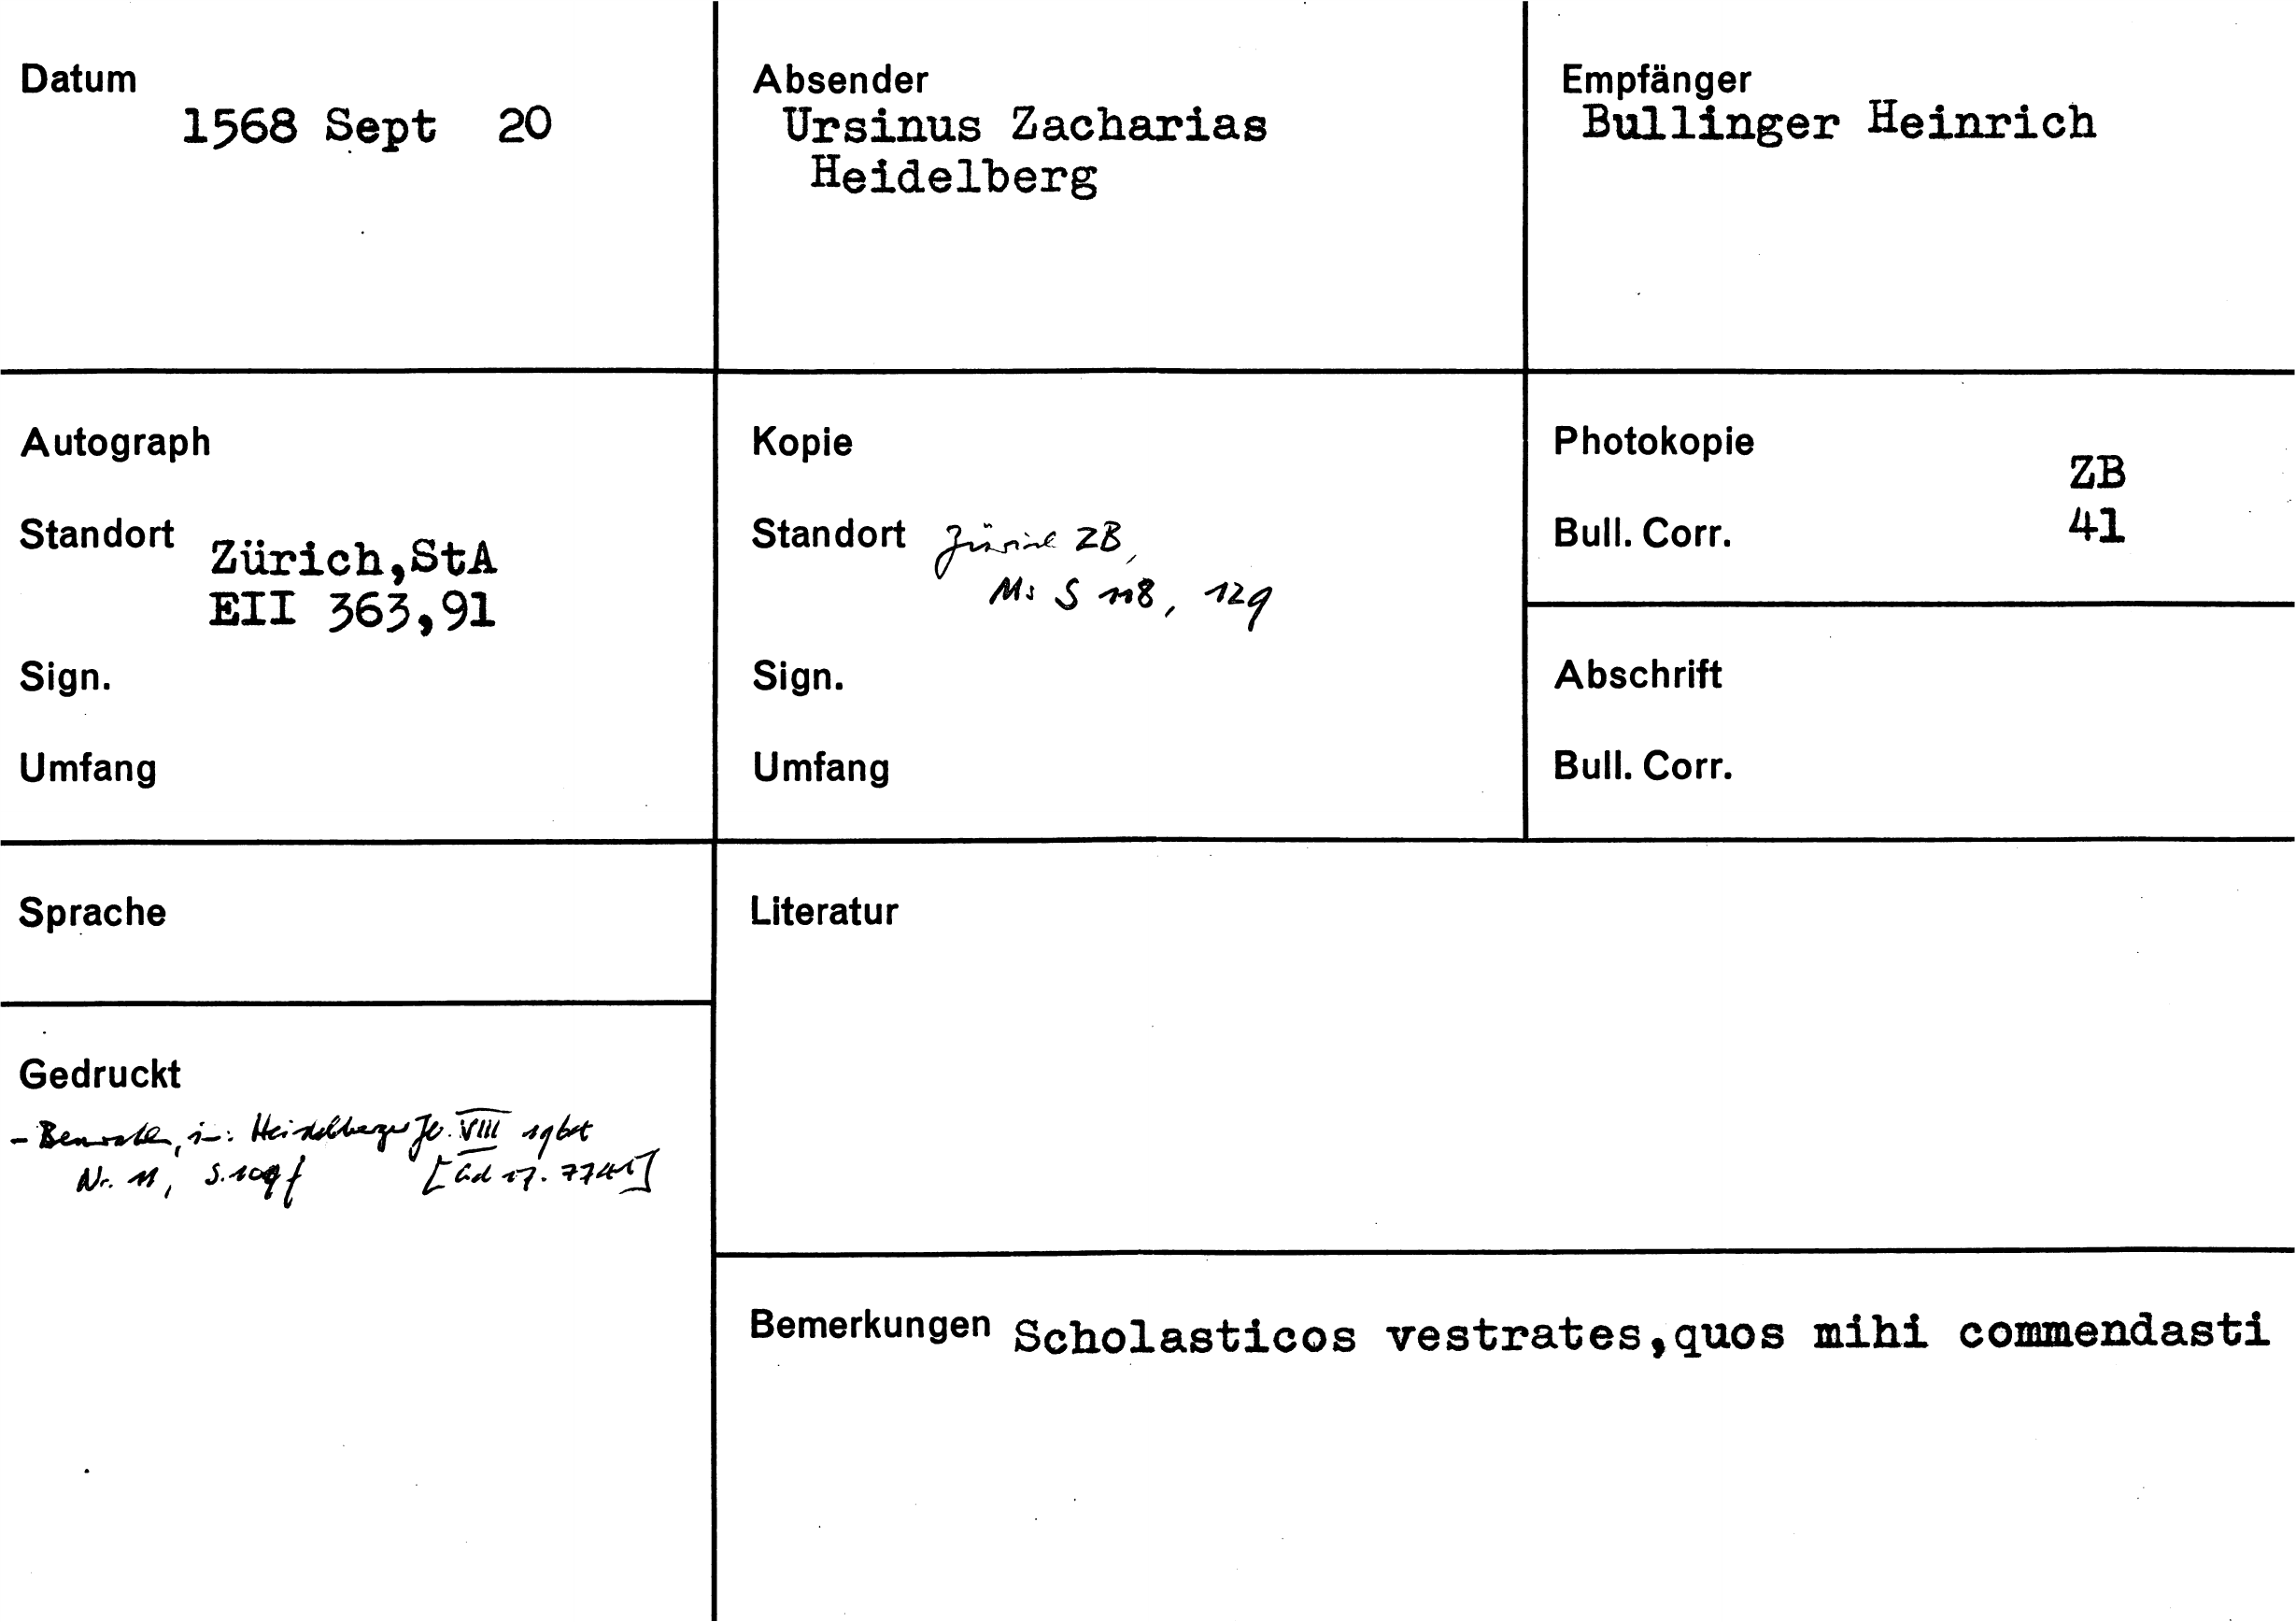 Datum
1568 Sept 20
Absender
Ursinus Zacharias
Heidelberg
Empfänger
Bullinger Heinrich
Autograph
Standort
Zürich,StA
EII 363,91
Sign.
Umfang
Kopie
Standort Zürich ZB,
Ms S 118, 129
Sign.
Umfang
Photokopie
ZB
Bull. Corr.
41
Abschrift
Bull. Corr.
Sprache
Gedruckt
- Benrath, in: Heidelberger Jb. VIII 1964
Nr. 11, S. 109f [Gd 17. 7741]
Literatur
Bemerkungen Scholasticos vestrates,quos mihi commendasti